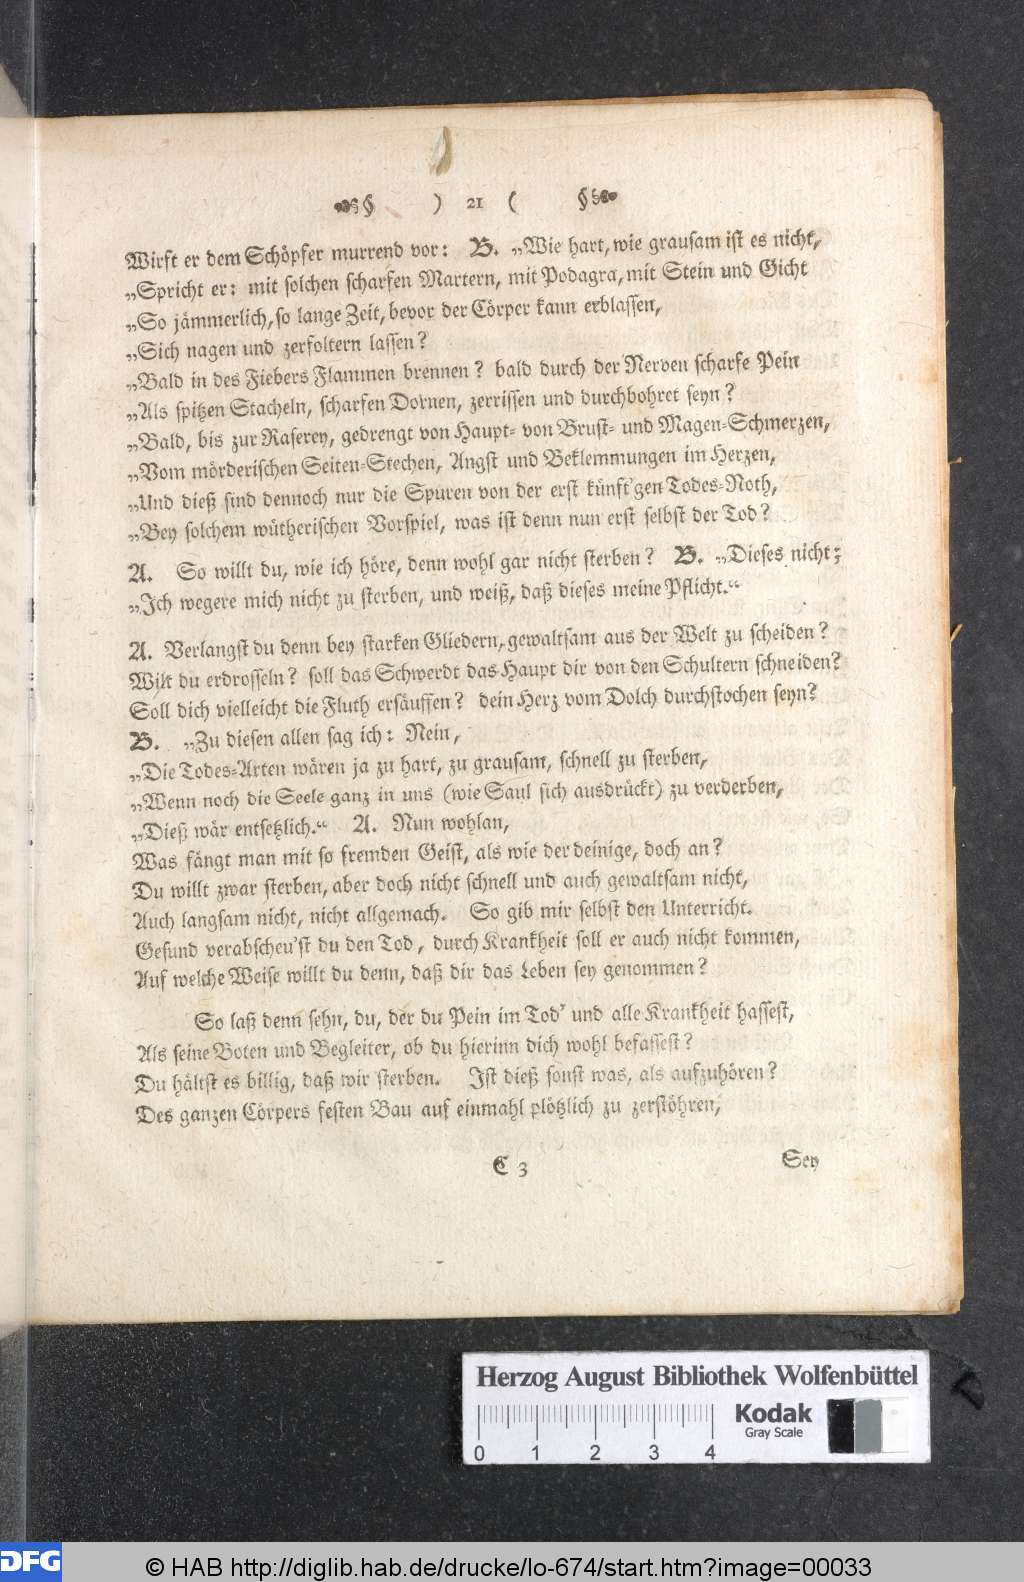 ) 21 (
Wirft er dem Schöpfer murrend vor: B. „Wie hart, wie grausam ist es nicht,
„Spricht er: mit solchen scharfen Martern, mit Podagra, mit Stein und Gicht
„So jämmerlich, so lange Zeit, bevor der Cörper kann erblassen,
„Sich nagen und zerfoltern lassen?
„Bald in des Fiebers Flammen brennen? bald durch der Nerven scharfe Pein
„Als spitzen Stacheln, scharfen Dornen, zerrissen und durchbohret seyn?
„Bald, bis zur Raserey, gedrengt von Haupt- von Brust- und Magen-Schmerzen,
„Vom mörderischen Seiten-Stechen, Angst und Beklemmungen im Herzen,
„Und dieß sind dennoch nur die Spuren von der erst künft'gen Todes-Noth,
„Bey solchem wütherischen Vorspiel, was ist denn nun erst selbst der Tod?
A. So willt du, wie ich höre, denn wohl gar nicht sterben? B. „Dieses nicht;
„Ich wegere mich nicht zu sterben, und weiß, daß dieses meine Pflicht.“
A. Verlangst du denn bey starken Gliedern, gewaltsam aus der Welt zu scheiden?
Wilt du erdrosseln? soll das Schwerdt das Haupt dir von den Schultern schneiden?
Soll dich vielleicht die Fluth ersäuffen? dein Herz vom Dolch durchstochen seyn?
B. „Zu diesen allen sag ich: Nein,
„Die Todes-Arten wären ja zu hart, zu grausam, schnell zu sterben,
„Wenn noch die Seele ganz in uns (wie Saul sich ausdrückt) zu verderben,
„Dieß wär entsetzlich.“ A. Nun wohlan,
Was fängt man mit so fremden Geist, als wie der deinige, doch an?
Du willt zwar sterben, aber doch nicht schnell und auch gewaltsam nicht,
Auch langsam nicht, nicht allgemach. So gib mir selbst den Unterricht.
Gesund verabscheu'st du den Tod, durch Krankheit soll er auch nicht kommen,
Auf welche Weise willt du denn, daß dir das Leben sey genommen?
So laß denn sehn, du, der du Pein im Tod' und alle Krankheit hassest,
Als seine Boten und Begleiter, ob du hierinn dich wohl befassest?
Du hältst es billig, daß wir sterben. Ist dieß sonst was, als aufzuhören?
Des ganzen Cörpers festen Bau auf einmahl plötzlich zu zerstöhren,
C 3 Sey
Herzog August Bibliothek Wolfenbüttel
0 1 2 3 4
Kodak
Gray Scale
DFG
© HAB http://diglib.hab.de/drucke/lo-674/start.htm?image=00033